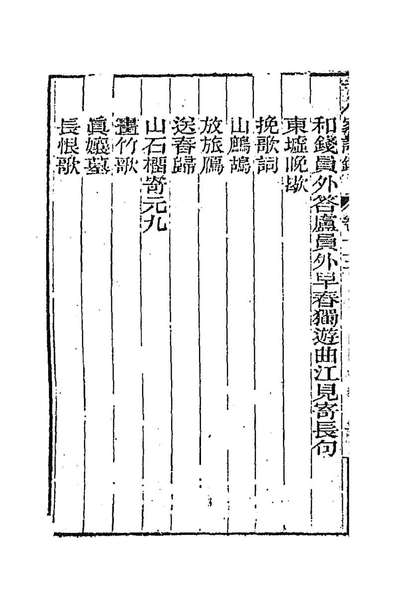 和錢員外答盧員外早春獨遊曲江見寄長句
東墟晚歇
挽歌詞
山鷓鴣
放旅鴈
送春歸
山石榴寄元九
畫竹歌
眞孃墓
長恨歌